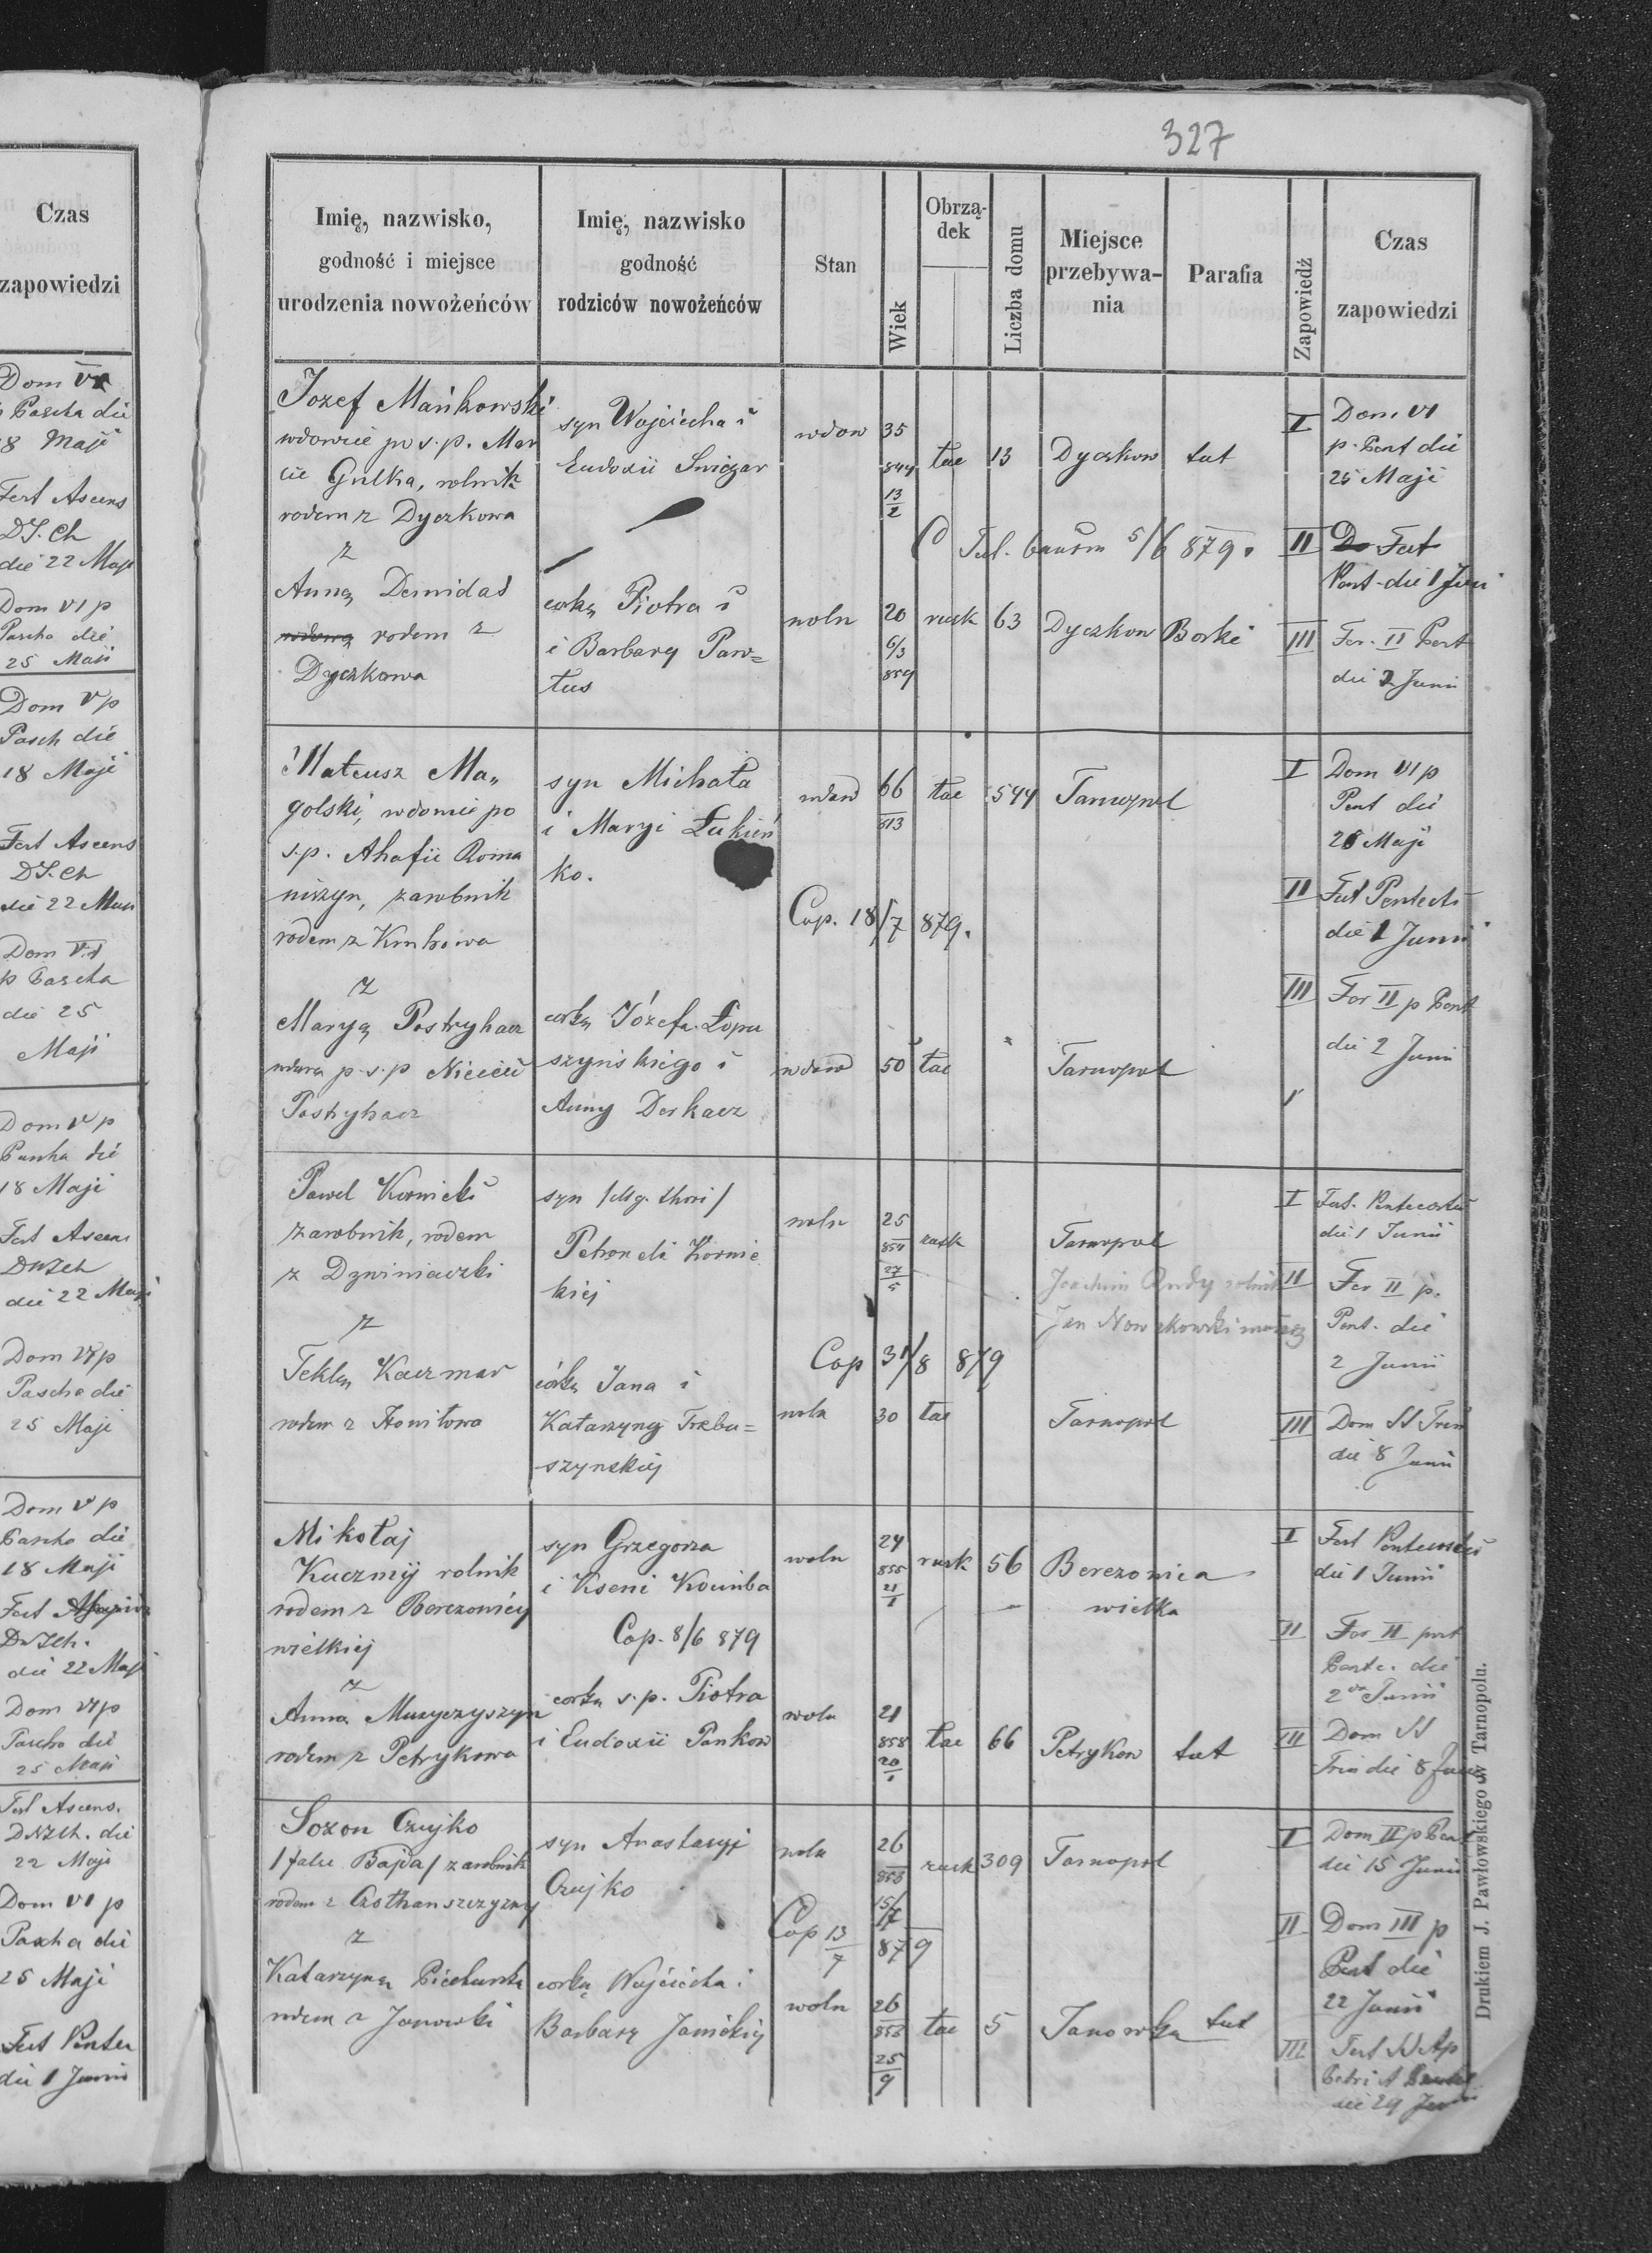 327
Czas
zapowiedzi
Dom VI
Pascha die
18 Maji
Fest Ascens
DJ. Ch
die 22 Maji
Dom VI p
Pascha die
25 Maji
Dom V p
Pasch die
18 Maji
Fest Ascens
DJ. Ch
die 22 Maji
Dom VI
p Pascha
die 25
Maji
Dom V p
Pascha die
18 Maji
Fest Ascens
die 22 Maji
Dom VI p
Pascha die
25 Maji
Dom V p
Pascha die
18 Maji
Fest
die 22 Maji
Dom VI p
Pascha die
25 Maji
Fest Ascens.
die
22 Maji
Dom VI p
Pascha die
25 Maji
Fest Pentec
die 1 Junii
Imię, nazwisko,
godność i miejsce
urodzenia nowożeńców
Imię, nazwisko
godność
rodziców nowożeńców
Stan
Wiek
Obrzą-
dek
Liczba domu
Miejsce
przebywa-
nia
Parafia
Zapowiedź
Czas
zapowiedzi
Jozef Mańkowski
wdowiec po s.p. Mar
cie Gulka, rolnik
rodem z Dyczkowa
z
Anną Demidas
rodem z
Dyczkowa
syn Wojciecha i
Eudoxii Sniczar
córką Piotra i
i Barbary Paw=
tus
wdow 35
844
13/2
łac 13 Dyczkow tut
5/6 879.
woln 20
6/3
859
rusk 63 Dyczkow Borki
I Dom VI
p. Pent die
25 Maji
II Fest
Pent die 1 Juni
III Fer. II Pent
die 2 Junii
Mateusz Ma„
golski, wdowiec po
s.p. Ahafii Roma
niszyn, zarobnik
rodem z
z
Maryą Postryhacz
wdowa p. s.p
Postryhacz
syn Michała
i Maryi Łukień
ko.
córką Józefa Łopu
szyńskiego i
Anny Derkacz
wdow 66
813
łac 544 Tarnopol
Cop. 18/7 879.
wdow 50 łac Tarnopol
I Dom VI p
Pent die
25 Maji
II Fest Pentects
die 1 Junii
III Fer II p Pent
die 2 Junii
Paweł Kornicki
zarobnik, rodem
z Dzwiniaczki
z
Teklą Kaczmar
rodem z
syn
Petroneli Kornic
kiej
córką Jana i
Katarzyny Trzbu=
szynskiej
woln 25
854
27/5
rusk Tarnopol
Joachim rolnik
Jan Nowakowski
Cop 31/8 879
woln 30 łac Tarnopol
I Fest. Pentecostes
die 1 Junii
II Fer II p.
Pent. die
2 Junii
III Dom SS Trin
die 8 Junii
Mikołaj
Kuczmij rolnik
rodem z Berezowicy
wielkiej
z
Anna Muzyczyszyn
rodem z Petrykowa
syn Grzegorza
i Kseni
Cop. 8/6 879
córką s.p. Piotra
i Eudoxii Pankow
woln 24
855
21/1
rusk 56 Berezowica
wielka
woln 21
858
20/1
łac 66 Petrykow tut
I Fest Pentecostes
die 1 Junii
II Fer II post
Pente. die
2 Junii
III Dom SS
Trin die 8 Junii
Sozon Czujko
/ Bajda / zarobnik
rodem z
z
Katarzyną
rodem z Janowki
syn Anastazyi
Czujko
córką Wojciecha i
Barbary Janickiej
woln 26
853
rusk 309 Tarnopol
Cop 13/7 879
woln 26
853
25/9
łac 5 Janowka tut
I Dom II p Pent
die 15 Junii
II Dom III p
Pent die
22 Junii
III Fest SS Ap
Petri
die 29 Junii
Drukiem J. Pawłowskiego w Tarnopolu.